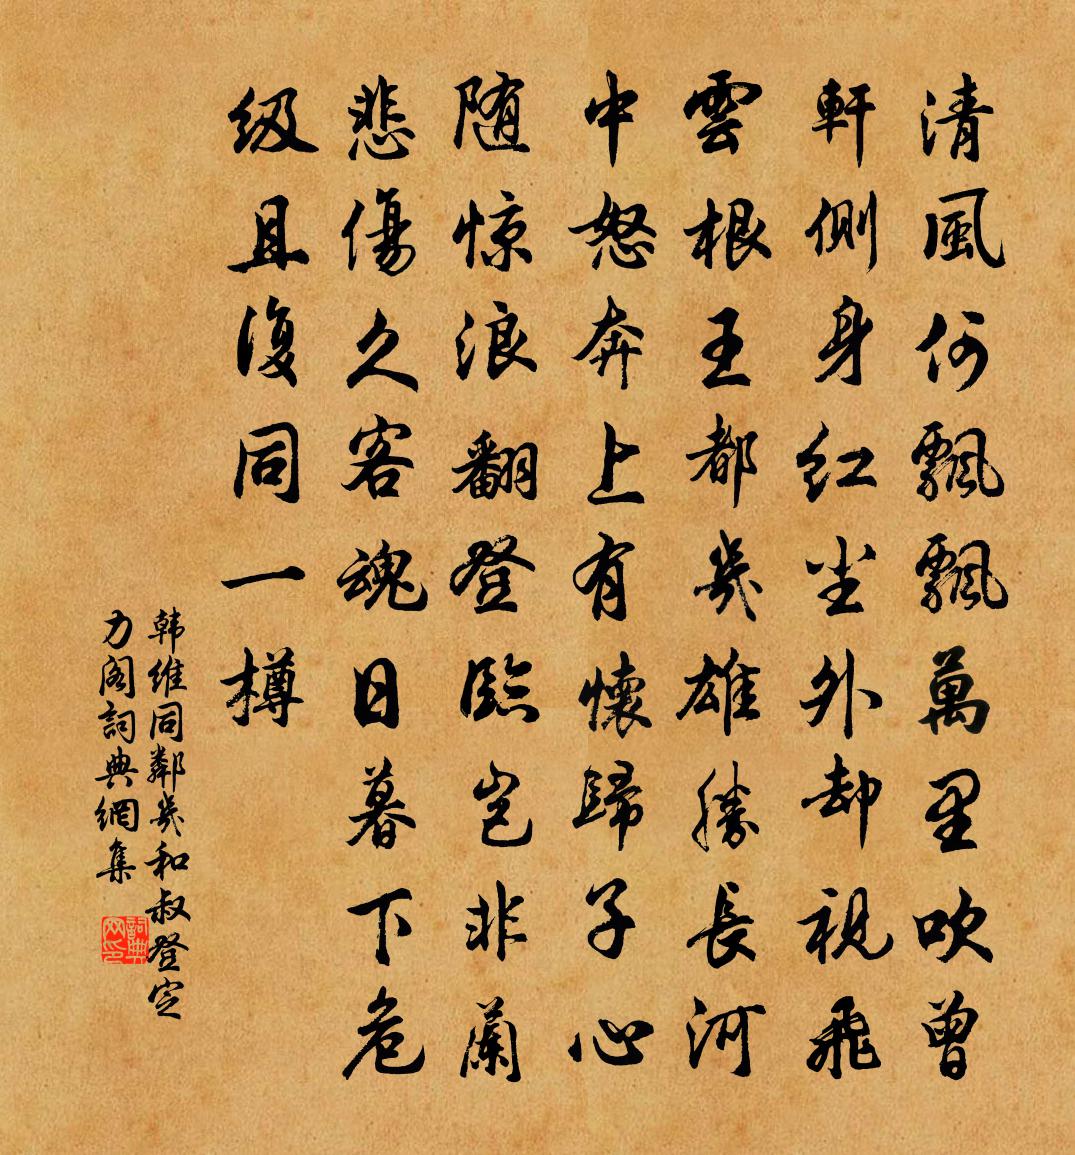 清風何飄飄萬里吹曾
軒側身红尘外却視飛
雲根王都幾雄勝長河
中怒奔上有懷歸子心
随惊浪翻登臨豈非蘭
悲傷久客魂日暮下危
级且復同一樽
韩维同鄰幾和叔登定
力阁詞典網集
詞典網印